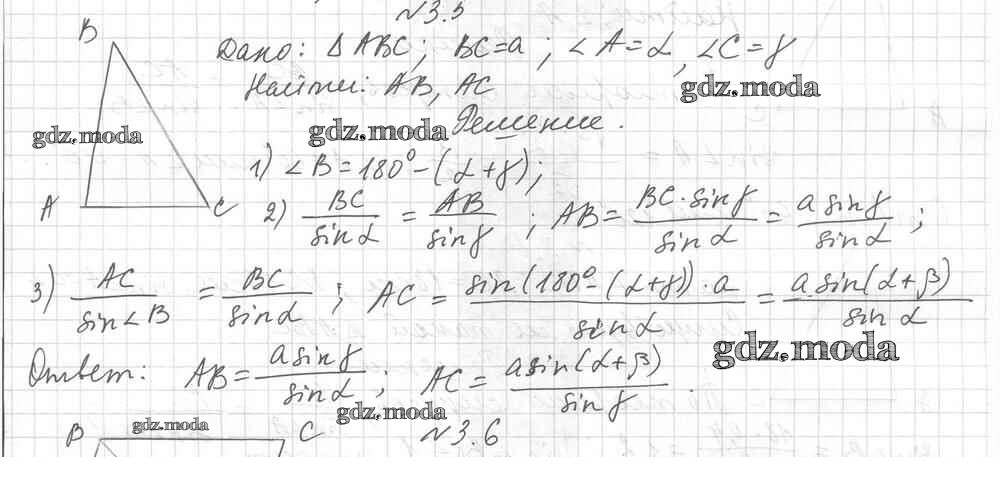 №3.5
B
Дано: ΔABC; BC=a; ∠A=α, ∠C=γ
Найти: AB, AC
gdz.moda
gdz.moda
gdz.moda
Решение.
1) ∠B=180°-(α+γ);
A
C
2) BC/sinα = AB/sinγ ; AB = BC·sinγ/sinα = a sinγ/sinα ;
3) AC/sin∠B = BC/sinα ; AC = sin(180°-(α+γ))·a/sinα = a sin(α+β)/sinα
gdz.moda
Ответ: AB = a sinγ/sinα ; AC = a sin(α+β)/sinγ .
gdz.moda
gdz.moda
B
C
№3.6